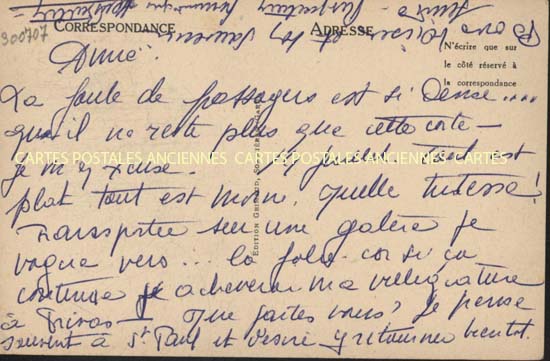 300707
CORRESPONDANCE
ADRESSE
N'écrire que sur
le côté réservé à
la correspondance
La foule de passagers est si dense....
qu'il ne reste plus que cette carte -
CARTES POSTALES ANCIENNES CARTES POSTALES ANCIENNES CARTES POSTALES ANCIENNES
je m'excuse. est
plat tout est morne, quelle tristesse!
Transportée sur une galère je
vogue vers... la folie. car si ça
continue je acheverai ma villégiature
à Privas - Que faites vous? Je pense
souvent à St Paul et désire y retourner bientôt.